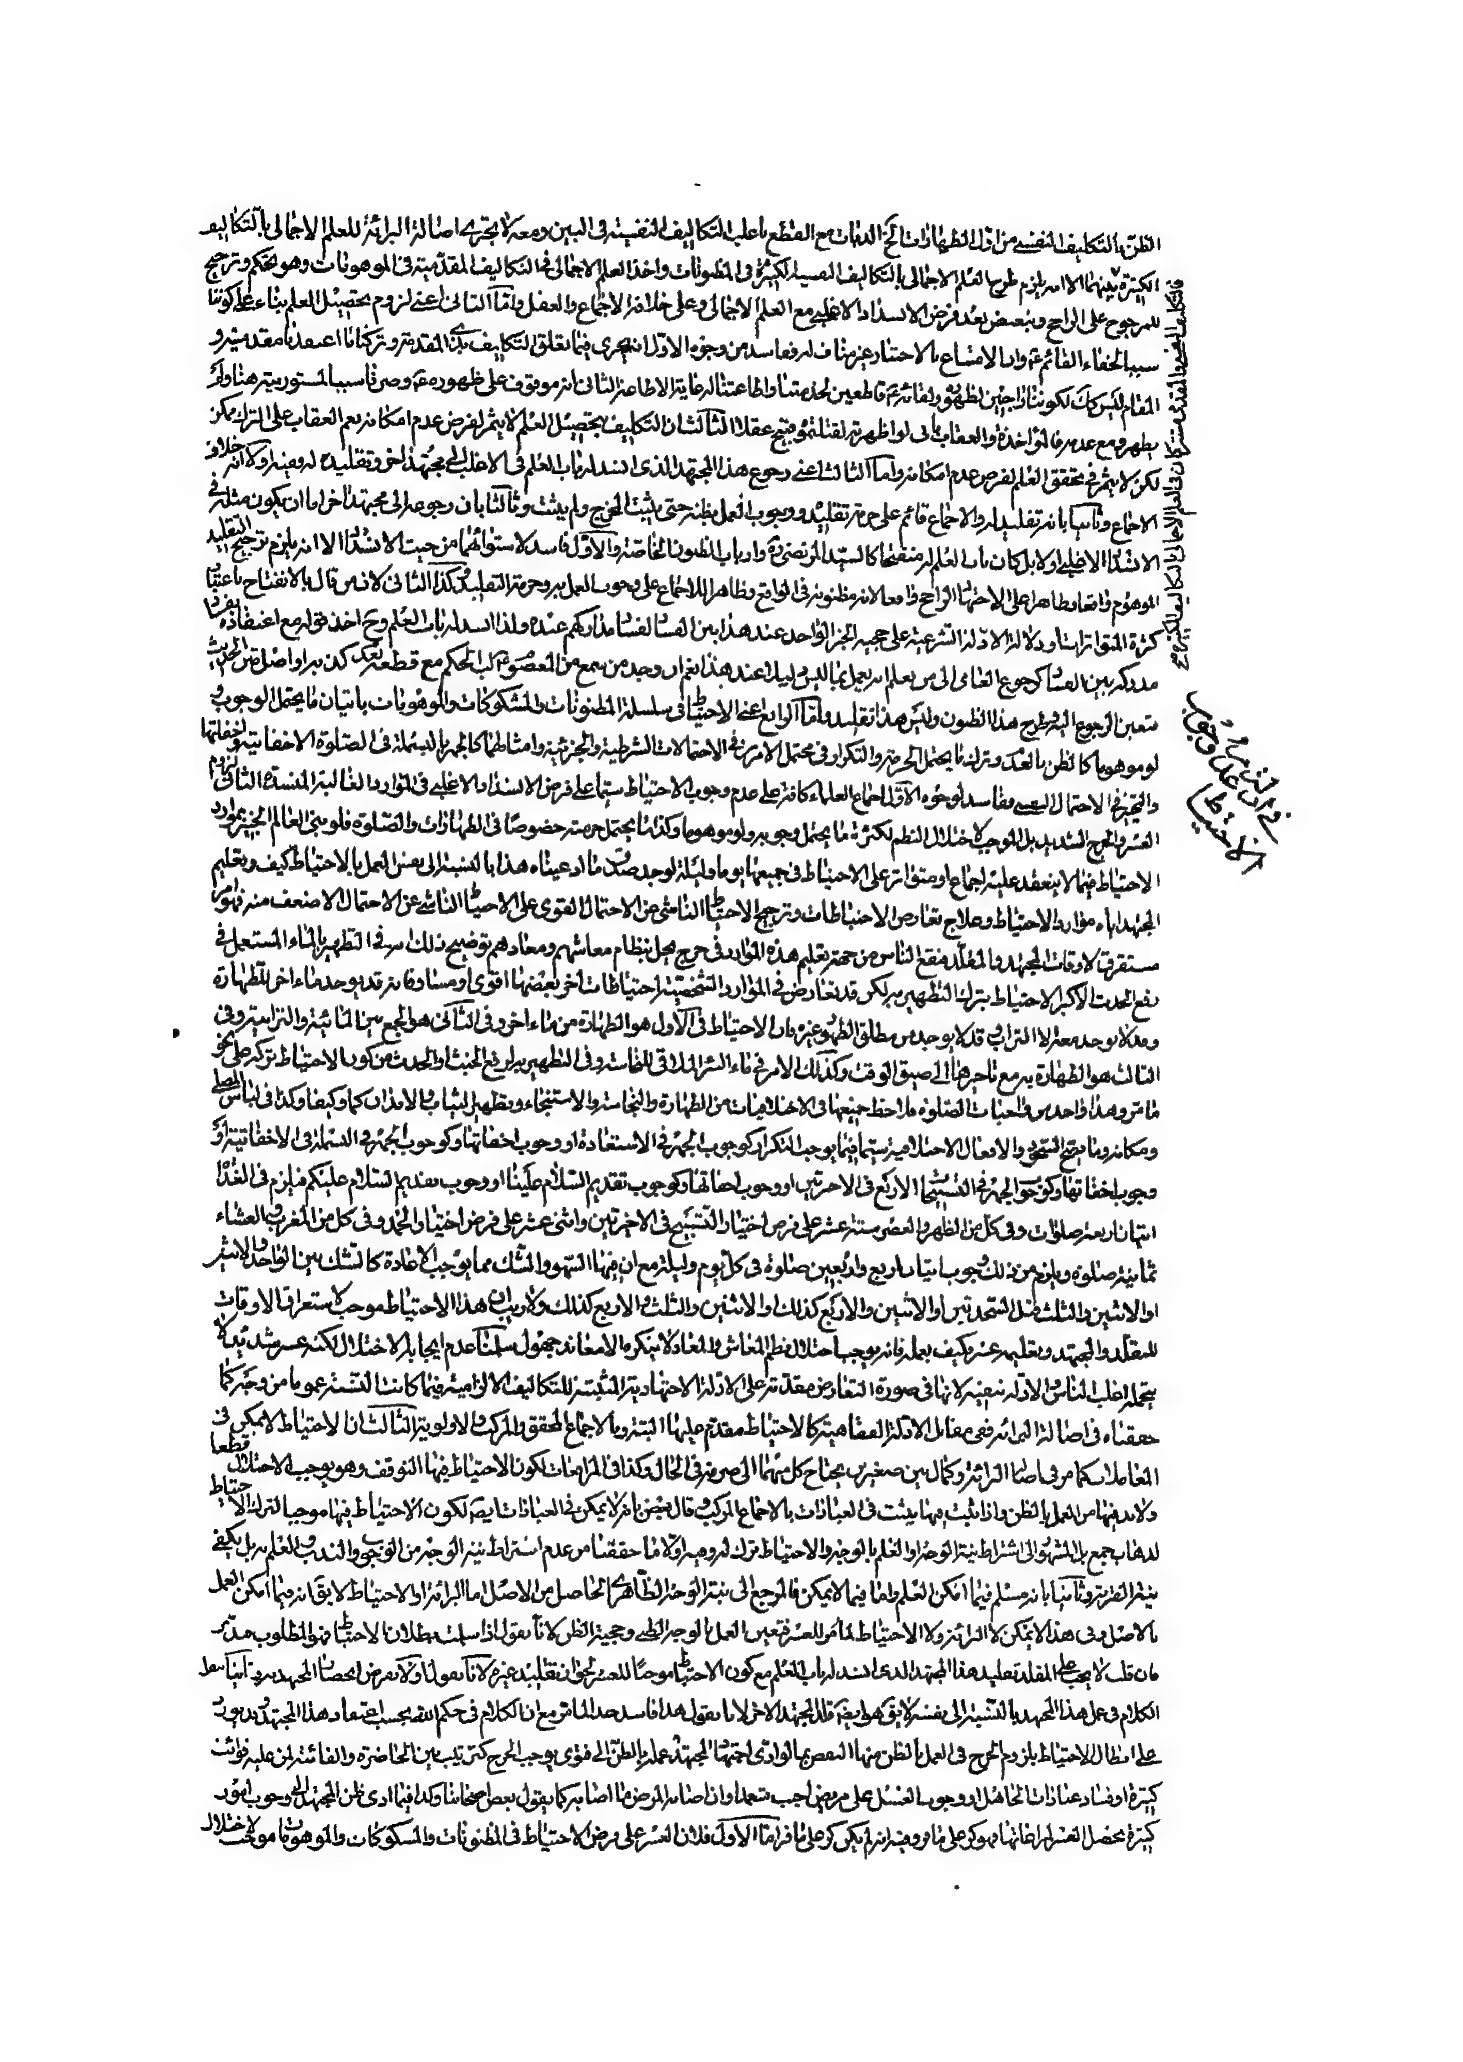 الظن بالتكليف النفسى من اول الطهارات الى الديات مع القطع باغلب التكاليف النفسية فى البين ومعه لا يجرى اصالة البرائة للعلم الاجمالى بالتكاليف
الكثيرة بينهما الا انه يلزم طرح العلم الاجمالى بالتكاليف النفسية الكثيرة فى المظنونات واخذ العلم الاجمالى فى التكاليف المقدمية فى الموهونات وهو تحكم وترجيح
للمرجوح على الراجح وتبعيض بعد فرض الانسداد الاغلبى مع العلم الاجمالى وعلى خلافه الاجماع والعقل واما الثانى اعنى لزوم تحصيل العلم بناء على كوننا
سبب الخفاء القائم عه وان الامتناع بالاختيار غير مناف له ففاسد من وجوه الاول انه يجرى فيما تعلق التكليف بذى المقدمة وتركنا ما اعتقدنا مقدميته و
المقام ليس كك لكوننا راجين لظهوره ولقائه عه قاطعين لخدمتنا واطاعتنا له غاية الاطاعة الثانى انه موقوف على ظهوره عه وصرنا سببا لمستوريته هنا ولم
يظهر ومع عدمه فالمؤاخذة والعقاب بانى لو اظهرته لقتلتموه قبيح عقلا الثالث ان التكليف بتحصيل العلم لا يثمر لفرض عدم امكانه نعم العقاب على الترك ممكن
لكن لا يثمر فى تحقق العلم لفرض عدم امكانه واما الثالث اعنى رجوع هذا المجتهد الذى انسد له باب العلم فى الاغلب الى مجتهد اخر وتقليده له ففيه اولا انه خلاف
الاجماع وثانيا بانه تقليد له والاجماع قائم على حرمة تقليده ووجوب العمل بظنه حتى يثبت المخرج ولم يثبت وثالثا بان رجوعه الى مجتهد اخر اما ان يكون مثله فى
الانسداد الاغلبى او لا بل كان باب العلم له منفتحا كالسيد المرتضى ره وارباب الظنون الخاصة والاول فاسد لاستوائهما من حيث الانسداد الا انه يلزم ترجيح التقليد
الموهوم واقعا وظاهرا على الاجتهاد الراجح واقعا لانه مظنونه فى الواقع وظاهرا للاجماع على وجوب العمل به وحرمة التقليد وكذا الثانى لان من قال بالانفتاح باعتقاد
كثرة المتواترات ودلالة الادلة الشرعية على حجية الخبر الواحد عند هذا بين الفساد لفساد مداركهم عنده ولذا انسد له باب العلم وح اخذ قوله مع اعتقاده بفساد
مدركه بين الفساد كرجوع العامى الى من يعلم انه يعمل بما ليس دليلا عند هذا نعم ان وجد من سمع من المعصوم ع لب الحكم مع قطعه بعد كذبه او اصل من الحديث
متعين الرجوع اليه وطرح هذا الظنون وليس هذا تقليدا واما الرابع اعنى الاحتياط فى سلسلة المظنونات والمشكوكات والموهومات باتيان ما يحتمل الوجوب و
لو موهوما كالظن بالعدم وترك ما يحتمل الحرمة والتكرار فى محتمل الامرين فى الاحتمالات الشرطية والجزئية وامثالهما كالجهر بالبسملة فى الصلوة الاخفاتية واخفاتها
والتخيير فى الاحتمال النفسى ففاسد لوجوه الاول اجماع العلماء كافة على عدم وجوب الاحتياط سيما على فرض الانسداد الاغلبى فى الموارد الغالبة المنسدة الثانى لزوم
العسر والحرج الشديد بل الموجب لاختلال النظم لكثرة ما يحتمل وجوبه ولو موهوما وكذا ما يحتمل حرمته خصوصا فى الطهارات والصلوة فلو بنى العالم الخبير بموارد
الاحتياط فيما لا ينعقد عليه اجماع او متواتر على الاحتياط فى جميعها يوما وليلة لوجد صدق ما ادعيناه هذا بالنسبة الى نفس العمل بالاحتياط كيف وتعليم
المجتهد اياه موارد الاحتياط وعلاج تعارض الاحتياطات وترجيح الاحتياط الناشى من الاحتمال القوى على الاحتياط الناشى عن الاحتمال الاضعف منه فهو امر
مستغرق لاوقات المجتهد والمقلد فيقع الناس من جهة تعليم هذه الموارد فى حرج يخل بنظام معاشهم ومعادهم توضيح ذلك انه فى التطهير بالماء المستعمل فى
رفع الحدث الاكبر الاحتياط بترك التطهير به لكن قد تعارض فى الموارد الشخصية احتياطات اخر بعضها اقوى او مساو فانه قد يوجد ماء اخر للطهارة
وقد لا يوجد معه الا التراب وقد لا يوجد من مطلق الطهور غيره فان الاحتياط فى الاول هو الطهارة من ماء اخر وفى الثانى هو الجمع بين المائية والترابية وفى
الثالث هو الطهارة به مع تاخيرها الى ضيق الوقت وكذلك الامر فى ماء البئر الملاقى للنجاسة وفى التطهير به لرفع الخبث والحدث من كون الاحتياط تركه على نحو
ما مر وهذا واحد من واجبات الصلوة فلاحظ جميعها فى الخلافيات من الطهارة والنجاسة والاستنجاء وتطهير الثياب والابدان كما وكيفا وكذا فى لباس المصلى
ومكانه وما يصح السجود والافعال الاحتلافية سيما فيما يوجب التكرار كوجوب الجهر فى الاستعاذة او وجوب اخفاتها وكوجوب الجهر فى البسملة فى الاخفاتية او
وجوب اخفاتها وكوجوب الجهر فى التسبيحات الاربع فى الاخرتين او وجوب اخفاتها وكوجوب تقديم السلام علينا او وجوب تقديم السلام عليكم فيلزم فى الغداة
اتيان اربعة صلوات وفى كل من الظهر والعصر ستة عشر على فرض اختيار التسبيح فى الاخرتين واثنى عشر على فرض اختيار الحمد وفى كل من المغرب والعشاء
ثمانية صلوة ويلزم من ذلك وجوب اتيان اربع واربعين صلوة فى كل يوم وليلة مع ان فيها السهو والشك مما يوجب الاعادة كالشك بين الواحد والاثنين
او الاثنين والثلث قبل السجدتين او الاثنين والاربع كذلك او الاثنين والثلث والاربع كذلك ولا ريب ان هذا الاحتياط موجب لاستغراق الاوقات
للمقلد والمجتهد وتعليمه عسر وكيف بعمله فانه يوجب اختلال نظم المعاش والمعاد لا ينكره الا معاند جهول سلمنا عدم ايجابه الاختلال لكنه عسر شديد لا
يتحمله اغلب الناس والادلة تنفيه لانها فى صورة التعارض مقدمة على الادلة الاجتهادية المثبتة للتكاليف الالزامية فيما كانت النسبة عموما من وجه كما
حققناه فى اصالة البرائة ففى مقابل الادلة الفقاهية كالاحتياط مقدم عليها البتة وبالاجماع المحقق والمركب والاولوية الثالث ان الاحتياط لا يمكن فى
المعاملات كما مر فى اصالة البرائة وكمال بين صغيرين يحتاج كل منهما الى صرفه فى الحال وكذا فى المرافعات لكون الاحتياط فيها التوقف وهو يوجب الاختلال قطعا
ولا بد فيها من العمل بالظن واذا ثبت فيها يثبت فى العبادات بالاجماع المركب وقال بعض بانه لا يمكن فى العبادات ايضه لكون الاحتياط فيها موجبا لترك الاحتياط
لذهاب جمع بل المشهور الى اشتراط نية الوجه او العلم بالوجه والاحتياط ترك له وفيه اولا ما حققنا من عدم اشتراط نية الوجه من الوجوب والندب والعلم به بل يكفى
نية القربة وثانيا بانه مسلم فيما امكن العلم واما فيما لا يمكن فالمرجع الى نية الوجه الظاهرى الحاصل من الاصل اما البرائة او الاحتياط لا يق انه فيما امكن العمل
بالاصل وفى هذا لا يمكن لا البرائة ولا الاحتياط لما مر للعسر فتعين العمل بالوجه الظنى وحجية الظن لانا نقول اذا سلمت بطلان الاحتياط فهو المطلوب مدبر
فان قلت لا يجب على المقلد تقليد هذا المجتهد الذى انسد له باب العلم مع كون الاحتياط موجبا للعسر لجواز تقليد غيره لانا نقول اولا نفرض انحصار المجتهد به وثانيا
الكلام فى عمل هذا المجتهد بالنسبة الى نفسه لا يق هو ايضه قلد المجتهد الاخر لانا نقول هذا فاسد جدا لما مر مع ان الكلام فى حكم الله بحسب اعتقاد هذا المجتهد
على ابطال الاحتياط بلزوم الحرج فى العمل بالظن منها النقض بما لو ادى اجتهاد المجتهد عمله بالظن الى فتوى يوجب الحرج كترتيب بين الحاضرة والفائتة لمن عليه فوائت
كثيرة او فساد عبادات الجاهل او وجوب الغسل على مريض اجنب متعمدا وان اصابه المرض ما اصابه كما يقول بعض اصحابنا وكذا فيما ادى ظن المجتهد الى وجوب امور
كثيرة يحصل العسر لمراعاتها فهو كر على ما فر وفيه انه لم يكن كر على ما فر اما الاول فلان العسر على فرض الاحتياط فى المظنونات والمشكوكات والموهومات موجب لاختلال